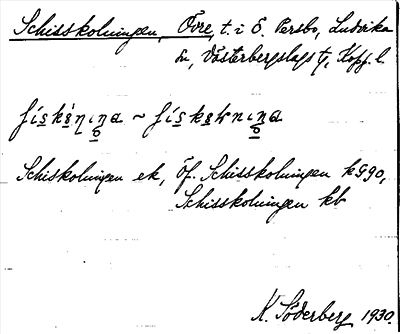 Schisskolningen, Övre, t. i Ö. Persbo, Ludvika
sn, Västerbergslags tg, Kopp. l.
Schiskolningen ek, Öf. Schisskolningen k990,
Schisskolningen kb
K. Söderberg 1930.